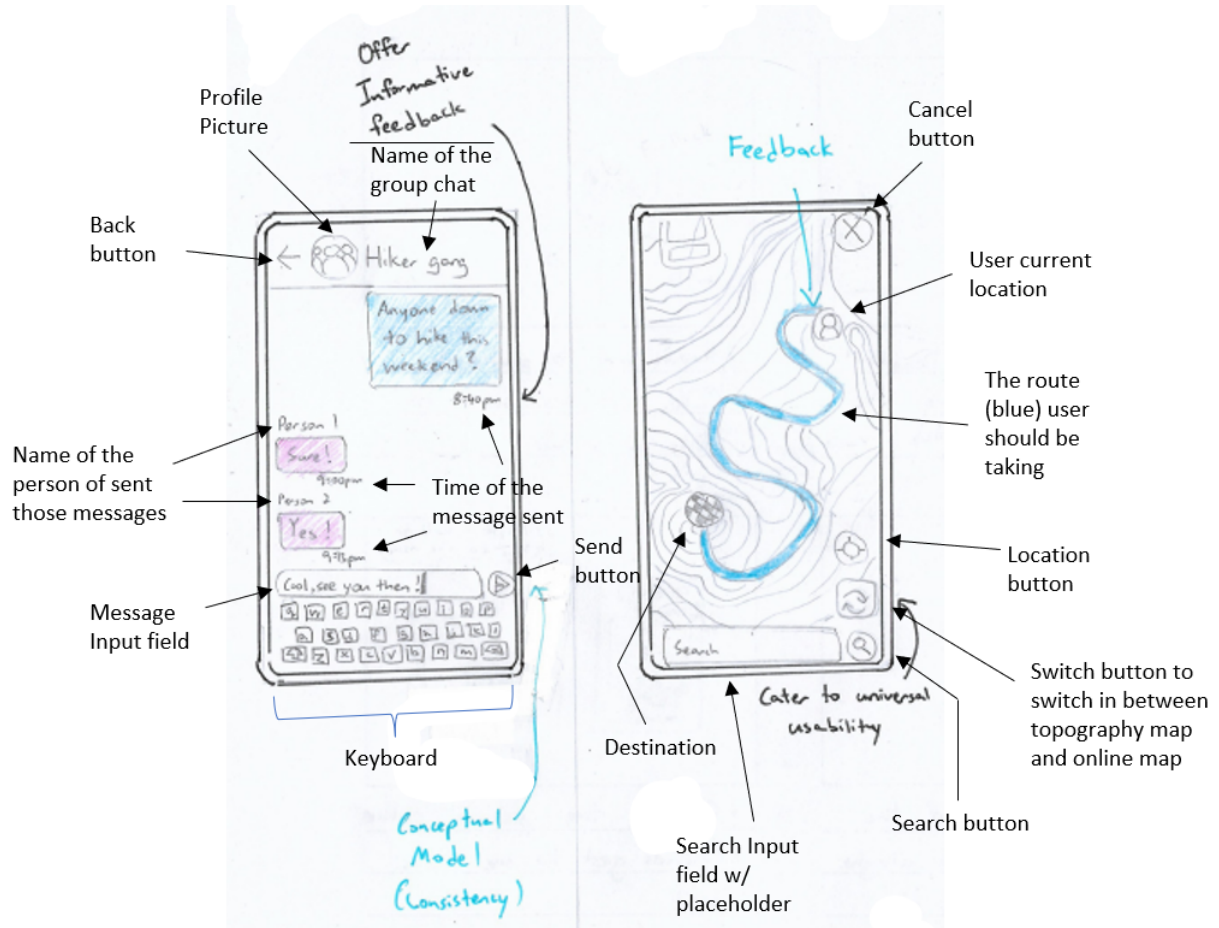 Offer
Informative
feedback
Profile
Picture
Name of the
group chat
Back
button
Hiker gang
Anyone down
to hike this
weekend?
8:40pm
Person 1
Sure!
9:00pm
Person 2
Yes!
9:15pm
Name of the
person of sent
those messages
Time of the
message sent
Send
button
Message
Input field
Cool, see you then!
q w e r t y u i o p
a s d f g h j k l
z x c v b n m
Keyboard
Conceptual
Model
(Consistency)
Feedback
Cancel
button
User current
location
The route
(blue) user
should be
taking
Location
button
Search
Cater to universal
usability
Switch button to
switch in between
topography map
and online map
Destination
Search button
Search Input
field w/
placeholder